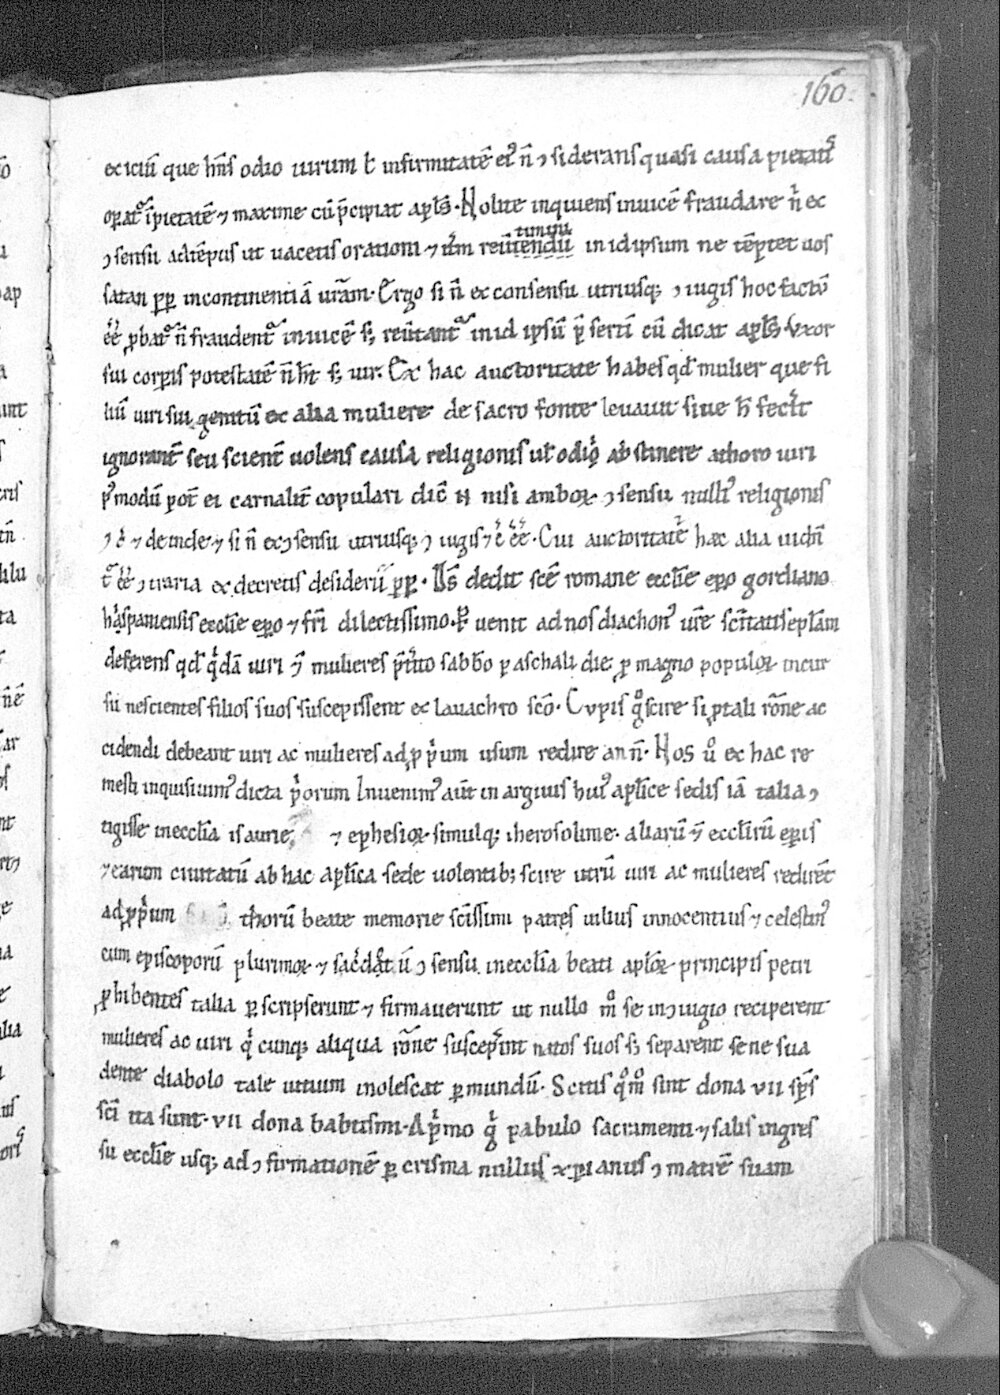 160.
ex iciũ que hñs odio uirum ł infirmitatẽ eiꝰ ñ ɔsiderans quasi causa pietatis
opatᷣ ĩpietatẽ ⁊ maxime cũ p̃cipiat apl̃s. Nolite inquiens inuicẽ fraudare ñ ex
ɔsensu ad tẽpus ut uacetis orationi ⁊ itm̃ reũtendũ in idipsum ne tẽptet uos
satan ꝓp incontinentiã ur̃am. Ergo si ñ ex consensu utriusqꝫ ɔiugis hoc factũ
ẽẽ ꝓbatᷣ ñ fraudentᷣ inuicẽ sꝫ reũtantᷣ in id ipsũ p̃sertĩ cũ dicat apl̃s. Vxor
sui corꝑis potestatẽ ñ ht̃ sꝫ uir. Ex hac auctoritate habes qđ mulier que fi
liũ uiri sui genitũ ex alia muliere de sacro fonte leuauit siue h̃ fec̃it
ignorant̃ seu scient̃ uolens causa religionis uł odiq̃ abstinere a thoro uiri
p̃ modũ pot̃ ei carnalit̃ copulari dic̃ N nisi amboꝝ ɔsensu nulliꝰ religionis
⁊ deinde ⁊ si ñ ex ɔsensu utriusqꝫ ɔiugis Cui auctoritate hac alia uidñ
t᷑ ẽẽ ɔtraria ex decretis desiderii pp. Ds̃ dedit scẽ romane eccl̃ie epõ gordiano
hispaniensis eccl̃ie epõ ⁊ fr̃i dilectissimo. Puenit ad nos diachonꝰ ur̃e sc̃itatis epl̃am
deferens qđ q̃dã uiri ⁊ mulieres p̃t̃ito sabb̃o paschali die p̱ magno populoꝝ incur
su nescientes filios suos suscepissent ex lauachro sc̃o. Cupis g̊ scire si ꝓ tali rõne ac
cidendi debeant uiri ac mulieres ad ꝓp̃um usum redire an ñ. Nos ů ex hac re
mesti inquisiuimꝰ dicta p̃orum Inuenimꝰ aũt in argiuis huiꝰ apl̃ice sedis iã talia ɔ
tigisse in eccl̃ia isaurie ⁊ ephesioꝝ simulqꝫ iherosolime. aliarũ ⁊ eccl̃irũ epis
⁊ earum ciuitatũ ab hac apl̃ica sede uolentibꝫ scire utrũ uiri ac mulieres redirẽt
ad ꝓp̃um thorũ beate memorie sc̃issimi patres uilius innocentius ⁊ celestinꝰ
cum episcoporũ plurimoꝝ ⁊ sac̃dotũ ɔsensu in eccl̃ia beati apl̃oꝝ principis petri
ꝓhibentes talia ꝑscripserunt ⁊ firmauerunt ut nullo m̊ se in ɔiugio reciperent
mulieres ac uiri q̃cunqꝫ aliqua rõne suscep̃int natos suos sꝫ separent se ne sua
dente diabolo tale uitium inolescat ꝑ mundũ. Scitis q̊m̊ sint dona VII sp̃s
sc̃i ita sunt. VII dona babtismi. A p̃mo g̃ pabulo sacramenti ⁊ salis ingres
su eccl̃ie usqꝫ ad ɔfirmationẽ ꝑ crisma nullus xp̃ianus ɔmatrẽ suam